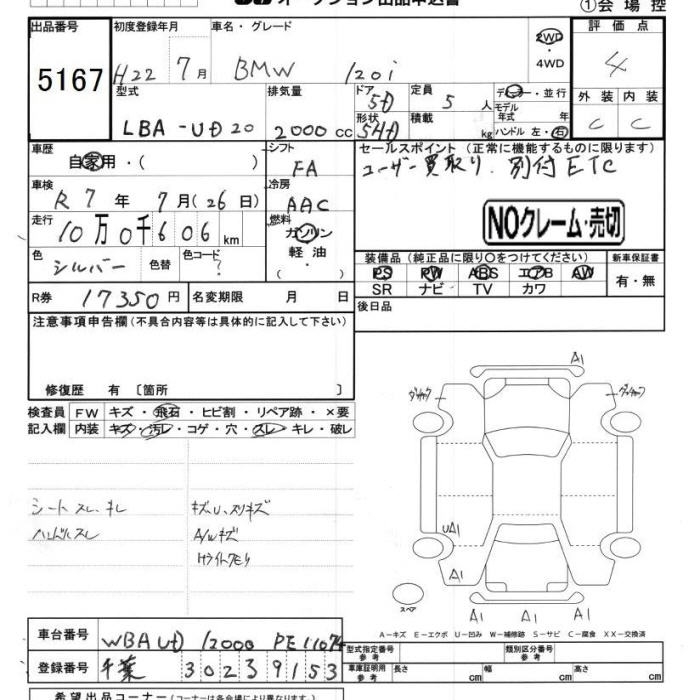 オークション出品申込書
①会場控
出品番号
5167
初度登録年月
H22 7月
車名・グレード
BMW 120i
2WD
・
4WD
評価点
4
外装 内装
C C
型式
LBA-UD20
排気量
2000 cc
ドア
5D
形状
5HD
定員
5 人
積載
kg
ディーラー・並行
モデル
年式 年
ハンドル 左・右
車歴
自家用・( )
シフト
FA
セールスポイント (正常に機能するものに限ります)
ユーザー買取り. 別付ETC
NOクレーム・売切
車検
R7年 7月(26日)
冷房
AAC
走行
10万0千606km
燃料
ガソリン
・
軽油
( )
色
シルバー
色替
色コード
?
装備品 (純正品に限り○をつけてください)
PS PW ABS エアB AW
SR ナビ TV カワ
新車保証書
有・無
R券 17350円
名変期限 月 日
後日品
注意事項申告欄 (不具合内容等は具体的に記入して下さい)
修復歴 有 〔箇所 〕
検査員
記入欄
FW キズ・飛石・ヒビ割・リペア跡・×要
内装 キズ・汚レ・コゲ・穴・スレ・キレ・破レ
シートスレ、キレ
ハンドルスレ
キズU、スリキズ
A/Wキズ
Hライトクモリ
A1
UA1
A1
A1 A1 A1
スペア
A-キズ E-エクボ U-凹み W-補修跡 S-サビ C-腐食 XX-交換済
車台番号
WBAUD12000PE11074
登録番号
千葉 302 3 9153
型式指定番号
参考
類別区分番号
参考
車庫証明用
参考
長さ cm 幅 cm 高さ cm
希望出品コーナー (コーナーは各会場により異なります。)